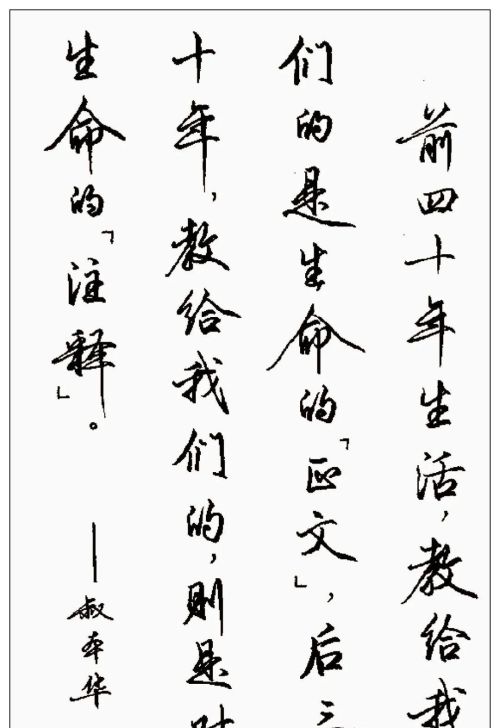 前四十年生活，教给我
们的是生命的「正文」，后三
十年，教给我们的，则是对
生命的「注释」。
——叔本华